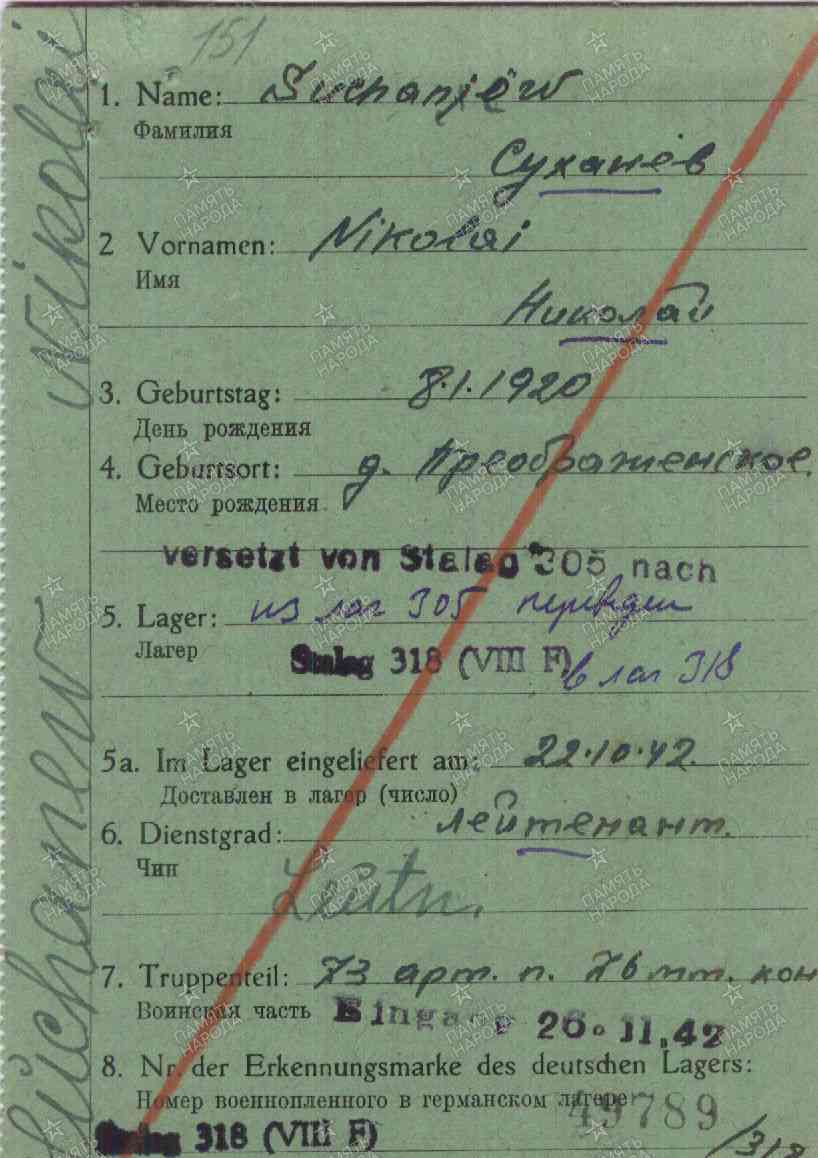 151
1. Name: Suchanjëw
Фамилия
Суханёв
2 Vornamen: Nikolai
Имя
Николай
3. Geburtstag: 8.1.1920
День рождения
4. Geburtsort: д. Преображенское.
Место рождения
versetzt von Stalag 305 nach
5. Lager: из лаг 305 переведен
Лагер
Stalag 318 (VIII F) в лаг 318
5a. Im Lager eingeliefert am: 22.10.42.
Доставлен в лагер (число)
6. Dienstgrad: лейтенант.
Чин
Leutn.
7. Truppenteil: 73 арт. п. 76 мм. кон
Воинская часть Eingang 26. 11. 42
8. Nr. der Erkennungsmarke des deutschen Lagers:
Номер военнопленного в германском лагере
49789
Stalag 318 (VIII F) /318
Suchanew Nikolai
ПАМЯТЬ НАРОДА